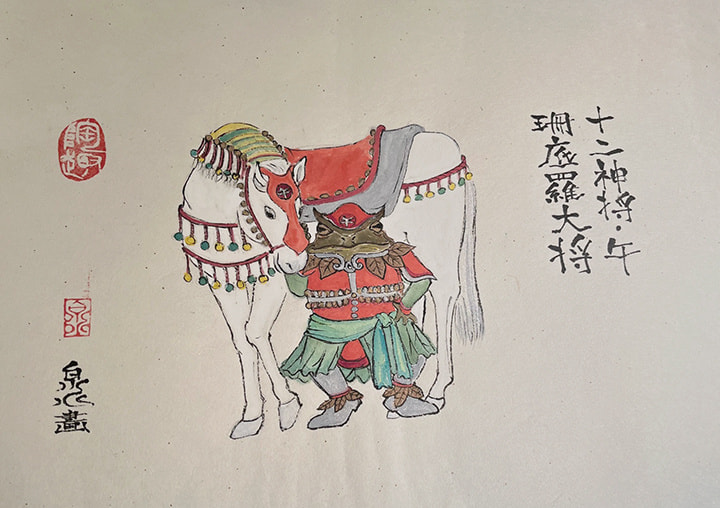 十二神将・午
珊底羅大将
午
泉畫